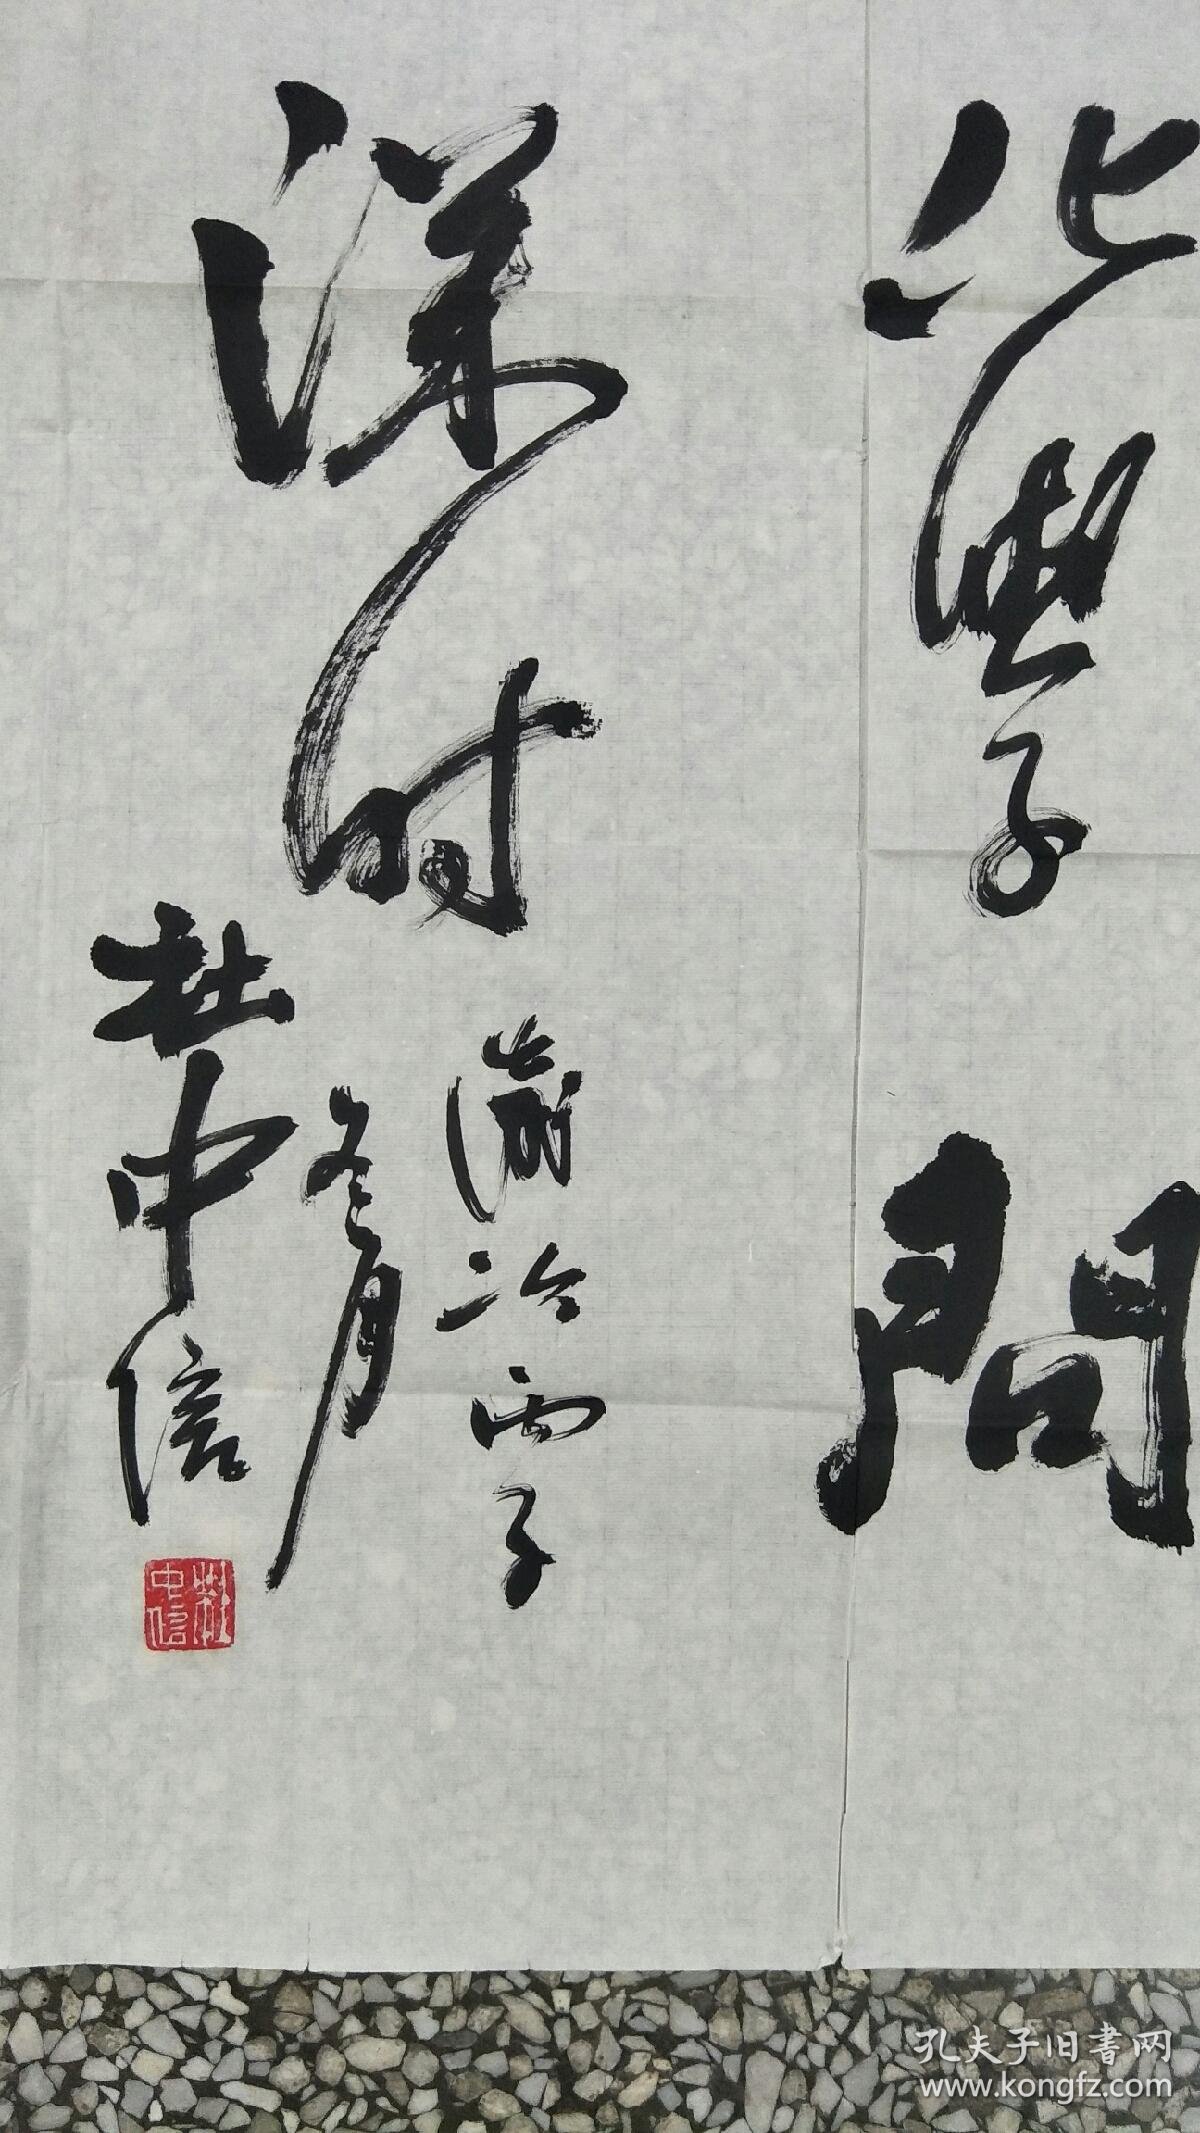 化學問
深时
歲次丙子
冬月
杜中信
杜中信
孔夫子旧書网
www.kongfz.com